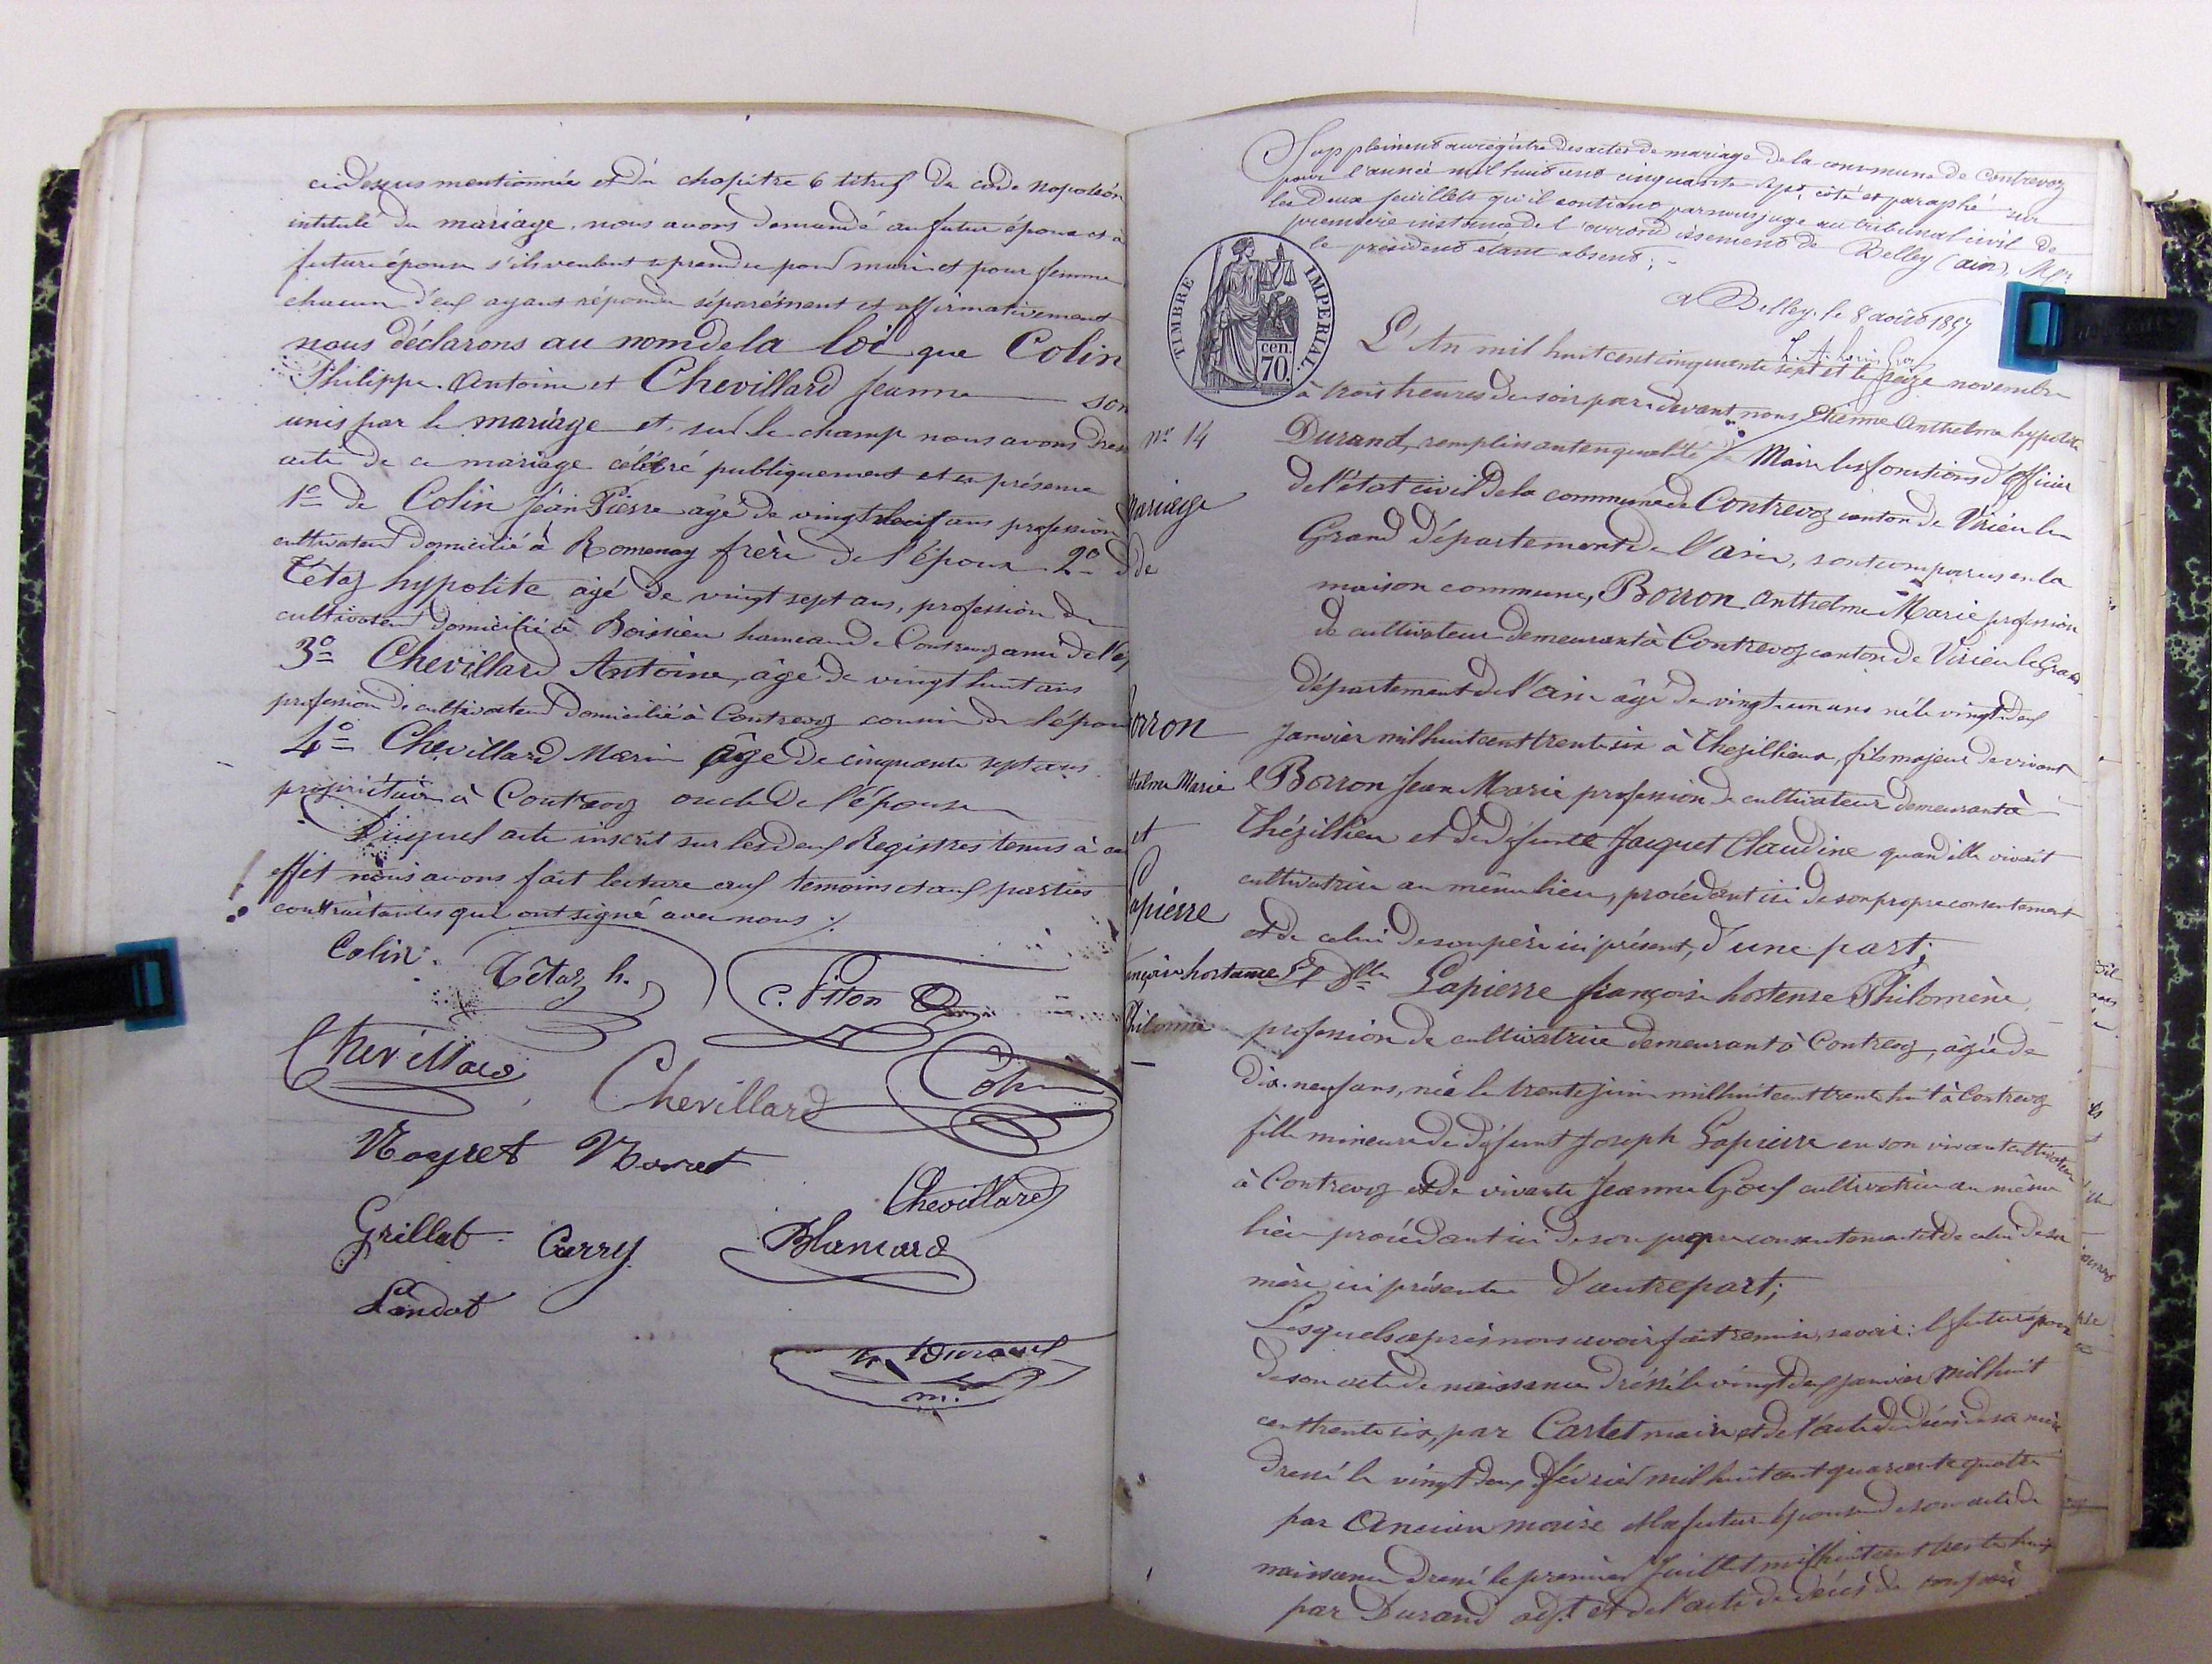 ci dessus mentionnée et du chapitre 6 titre 5 du code napoléon
intitulé du mariage, nous avons demandé au futur époux et à
future épouse s'ils veulent se prendre pour mari et pour femme
chacun d'eux ayant répondu séparément et affirmativement
nous déclarons au nom de la loi que Colin
Philippe Antoine et Chevillard Jeanne son
unis par le mariage et sur le champ nous avons dres
acte de ce mariage célébré publiquement et en présence
1º de Colin Jean Pierre âgé de vingt neuf ans profession
cultivateur domicilié à Romenay frère de l'époux 2º de
Têtaz hypolite âgé de vingt sept ans, profession de
cultivateur domicilié à Boissieu hameau de Contrevoz ami de l'ép
3º Chevillard Antoine, âgé de vingt huit ans
profession de cultivateur domicilié à Contrevoz cousin de l'épou
4º Chevillard Marin âgé de cinquante sept ans
propriétaire à Contrevoz oncle de l'épouse
Duquel acte inscrit sur les deux Registres tenus à cet
effet nous avons fait lecture aux témoins et aux parties
contractantes qui ont signé avec nous ;/.
Colin Têtaz h. C. Piton
Chevillard Chevillard Colin
Nayret
Chevillard
Grillat Carry Blancard
Landot
Durand
m.
Supplément au registre des actes de mariage de la commune de Contrevoz
pour l'année mil huit cent cinquante sept, coté et paraphé sur
les deux feuillets qu'il contient par nous juge au tribunal civil de
première instance de l'arrondissement de Belley (ain), Mr
le président étant absent ; -
A Belley, le 8 août 1857
TIMBRE IMPERIAL.
cen. 70.
L'An mil huit cent cinquante sept et le seize novembre
à trois heures du soir par devant nous Etienne Anthelme hypolite
nº 14
Durand, remplissant en qualité de Maire les fonctions d'officier
de l'état civil de la commune de Contrevoz canton de Virieu le
Mariage
Grand département de l'ain, sont comparus en la
de
maison commune, Borron Anthelme Marie profession
de cultivateur demeurant à Contrevoz canton de Virieu le Grand
département de l'ain âgé de vingt un ans né le vingt deux
orron
Janvier mil huit cent trente six à Thezillieux, fils majeur de vivant
thelme Marie
Borron Jean Marie profession de cultivateur demeurant à
et
Thézillieu et de défunte Jacquet Claudine quand elle vivait
cultivatrice au même lieu, procédant ici de son propre consentement
apierre
et de celui de son père ici présent, d'une part ;
ançoise hortanse
Et Dlle Lapierre françoise hortense Philomène
Philomène
profession de cultivatrice demeurant à Contrevoz, âgée de
dix-neuf ans, née le trente juin mil huit cent trente huit à Contrevoz
fille mineure de défunt Joseph Lapierre en son vivant cultivateur
à Contrevoz et de vivante Jeanne Goux cultivatrice au même
lieu procédant ici de son propre consentement et de celui de sa
mère ici présente d'autre part ;
Lesquels après nous avoir fait remise, savoir : le futur époux
de son acte de naissance dréssé le vingt deux janvier mil huit
cent trente six, par Cartet maire, et de l'acte de décès de sa mère
dressé le vingt deux février mil huit cent quarante quatre
par Ancian maire et la future épouse de son acte de
naissance dressé le premier Juillet mil huit cent trente huit
par Durand adjt. et de l'acte de décès de son père